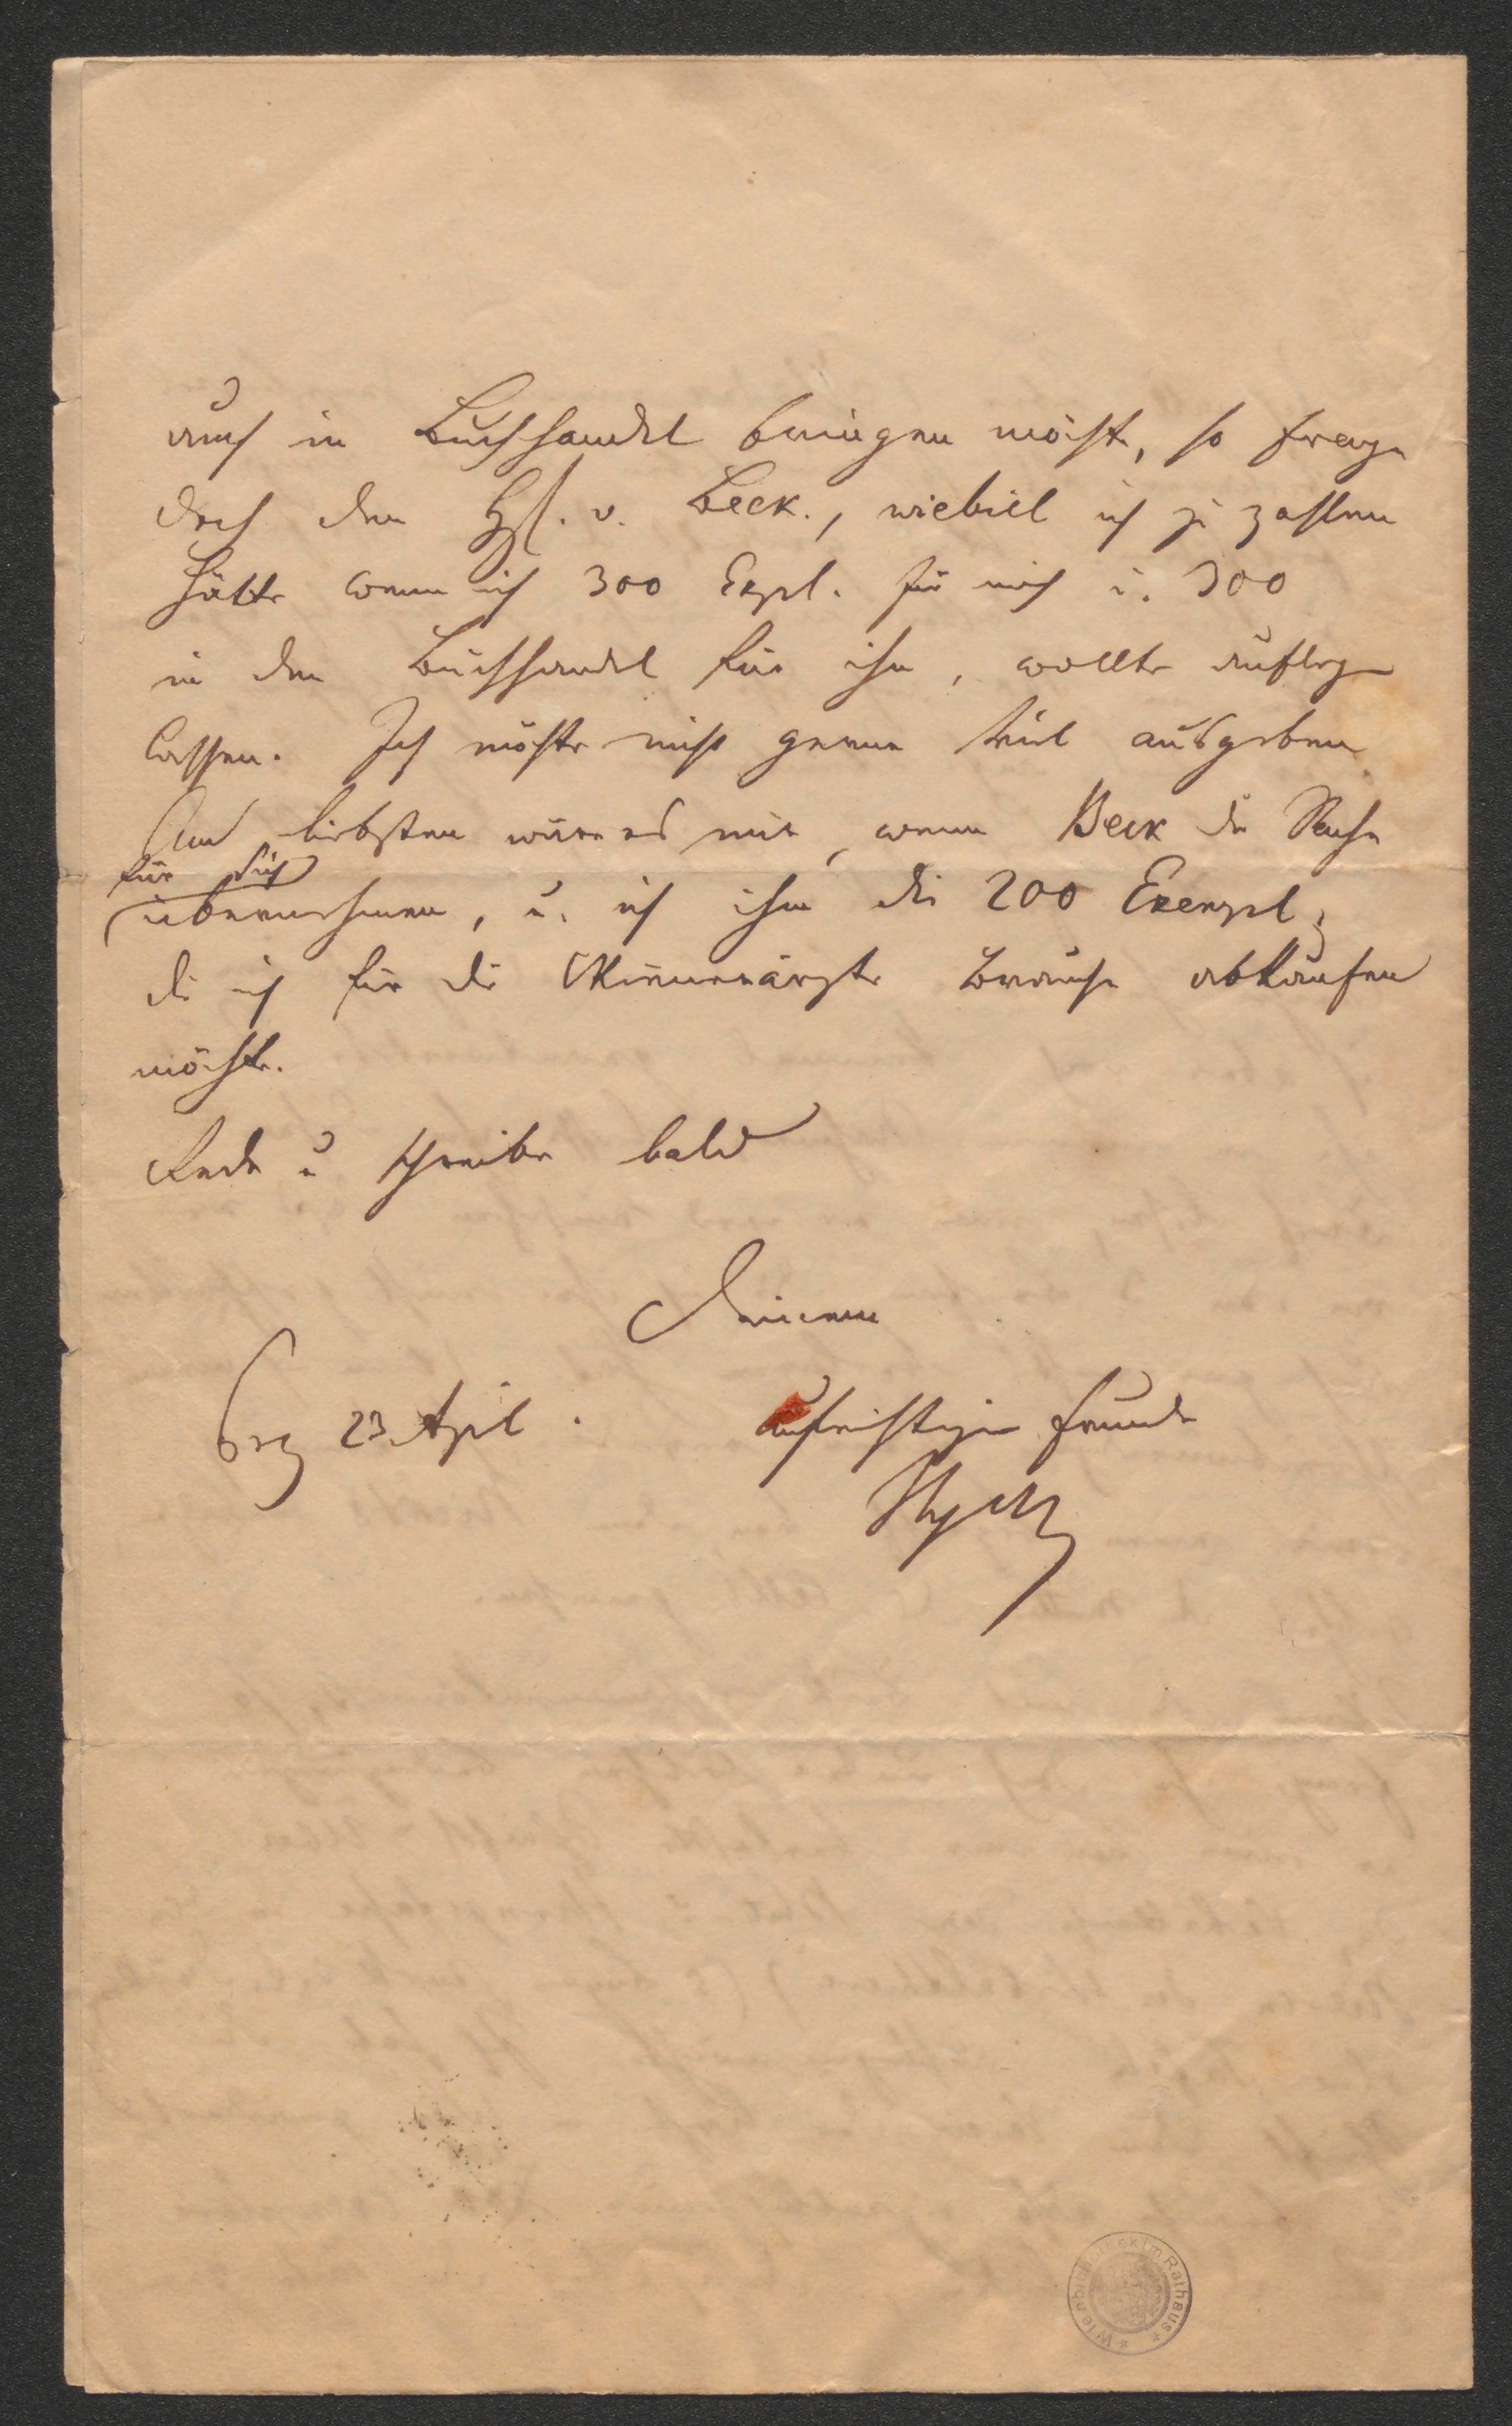 auch in Buchhandel bringen möchte, so frage
doch den H. v. Beck., wieviel ich zu zahlen
hätte wenn ich 300 Expl. für mich u. 300
in den Buchhandel für ihn, wollte auflegen
lassen. Ich möchte nicht gerne viel ausgeben
Am liebsten wäre es mir, wenn Beck die Sache
für sich
übernehmen, u. ich ihm die 200 Exempl,
die ich für die Wiener Ärzte brauche abkaufen
möchte.
Rede u schreibe bald
Deinem
Prg 23. April. aufrichtigen Freunde
Hyrtl
Wienbibliothek im Rathaus